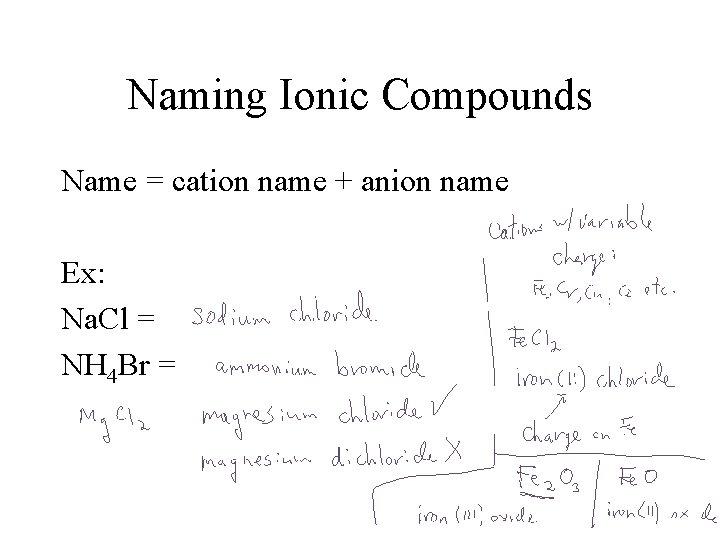 Naming Ionic Compounds
Name = cation name + anion name
Ex:
Na.Cl = sodium chloride.
NH₄Br = ammonium bromide
MgCl₂ magnesium chloride ✓
magnesium dichloride X
Cations w/variable
charge:
Fe, Cr, etc.
FeCl₂
iron(II) chloride
charge on Fe
Fe₂O₃
iron(III) oxide.
FeO
iron(II) oxide